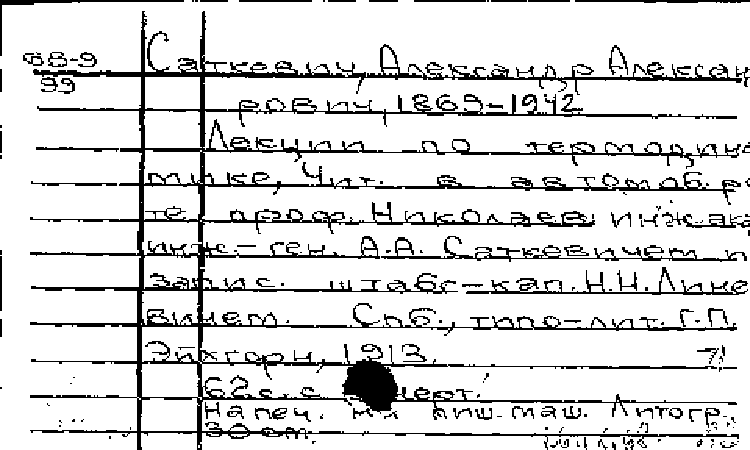 68-9
99
Саткевич, Александр Алексан
рович, 1869-1942
Лекции по термодина
мике, Чит. в автомоб. ро
те проф. Николаев. инж. ак
инж-ген. А.А. Саткевичем п
запис. штабс-кап. Н.Н. Лике
вичем. Спб., типо-лит. Г.П.
Эйхгорн, 1913.
62 с. с черт.
Напеч. на пиш. маш. Литогр.
30 см.